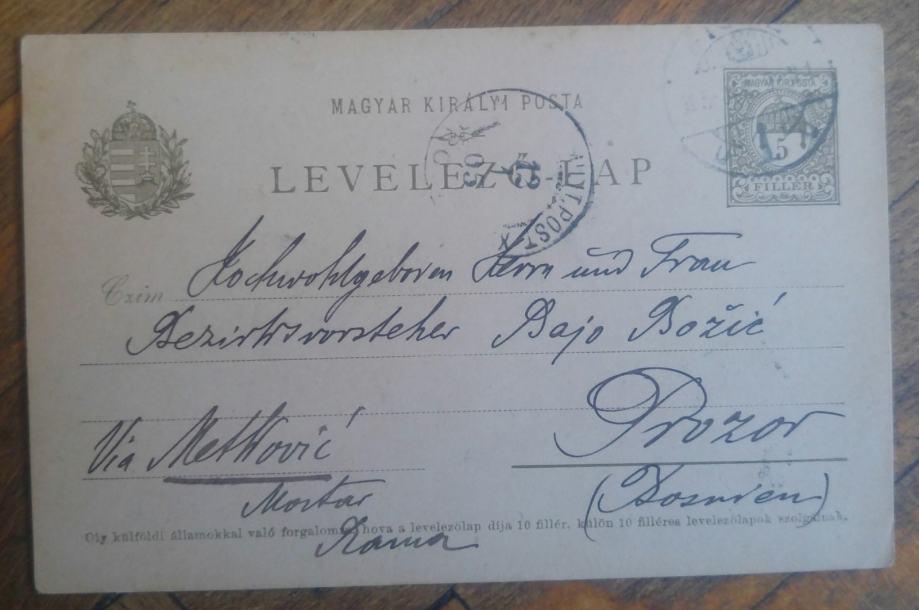 MAGYAR KIRÁLYI POSTA
LEVELEZŐ-LAP
MAGYAR KIR. POSTA
5
FILLÉR
12
1
03
Czím
Hochwohlgeboren Herrn und Frau
Bezirksvorsteher Bajo Božić
Via Metković
Prozor
Mostar
(Bosnien)
Oly külföldi államokkal való forgalomban, hova a levelezőlap díja 10 fillér, külön 10 filléres levelezőlapok szolgálnak.
Rama